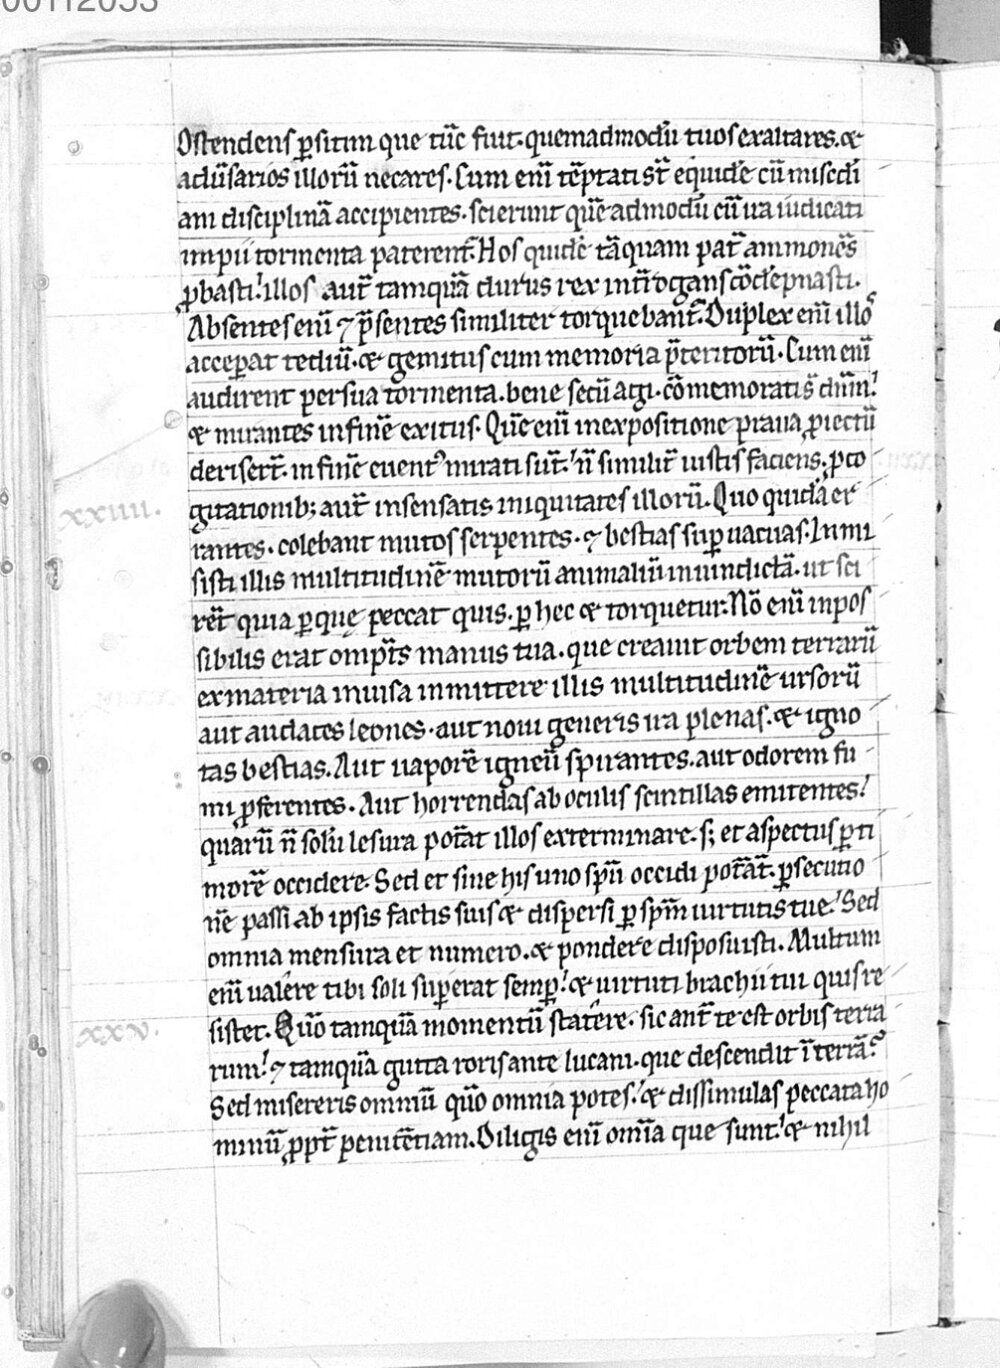 00112053
Ostendens ꝑ sitim que tūc fuit. quemadmodū tuos exaltares. &
adūsarios illorū necares. Cum eni᷒ tēptati st᷒ equidē cū misc̄di
am disciplinā accipientes. scierunt quēadmodū cū ira iudicati
impii tormenta paterent᷒. Hos quidē tāquam pat᷒ ammonēs
ꝓbasti. illos aut᷒ tamquā durus rex int᷒rogans cōdēpnasti.
Absentes eni᷒ ⁊ p̄sentes similiter torquebant᷒. Duplex eni᷒ illos
acceꝑat tediū. & gemitus cum memoria p̄teritorū. Cum eni᷒
audirent per sua tormenta. bene secū agi. cōmemorati s̄ dn̄m.
& mirantes in finē exitus. Quē eni᷒ in expositione praua ꝓiectū
deriser̄t. in finē euentꝰ mirati sūt. n̄ similit᷒ iustis faciens. ꝓ co
gitationib; aut᷒ insensatis iniquitates illorū. Quo quidā er
xxiiii.
rantes. colebant mutos serpentes. ⁊ bestias suꝑuacuas. Inmi
sisti illis multitudinē mutorū animaliū in uindictā. ut sci
rēt quia ꝑ que peccat quis. ꝑ hec & torquetur. Nō eni᷒ inpos
sibilis erat omp̄ts manus tua. que creauit orbem terrarū
ex materia inuisa inmittere illis multitudinē ursorū
aut audaces leones. aut noui generis ira plenas. & igno
tas bestias. Aut uaporē igneū spirantes. aut odorem fu
mi ꝓferentes. Aut horrendas ab oculis scintillas emitentes.
quarū n̄ solū lesura pot᷒at illos exterminare. s; et aspectus ꝑ ti
morē occidere. Sed et sine his uno spū occidi pot᷒āt. ꝑsecutio
nē passi ab ipsis factis suis & dispersi ꝑ spm̄ uirtutis tue. Sed
omnia mensura et numero. & pondere disposuisti. Multum
eni᷒ ualere tibi soli suꝑerat semꝑ. & uirtuti brachii tui quis re
xxv.
sistet. Quō tamquā momentū statere. sic ant᷒ te est orbis terra
rum. ⁊ tamquā gutta roris ante lucani. que descendit ī terrā.
Sed misereris omniū quō omnia potes. & dissimulas peccata ho
minū ꝓpt᷒ penitētiam. Diligis eni᷒ omīa que sunt. & nihil